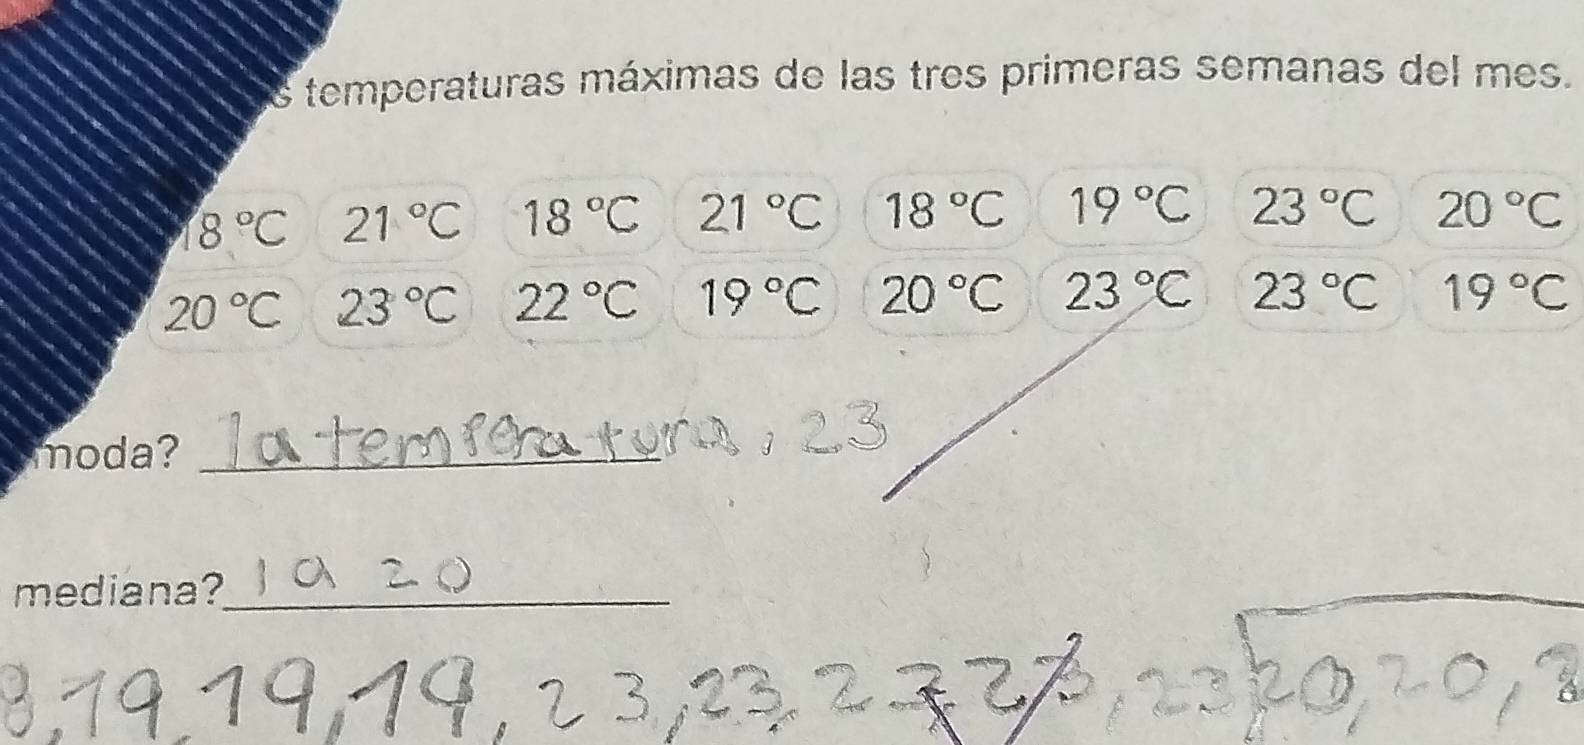 temperaturas máximas de las tres primeras semanas del mes.
18 °C 21 °C 18 °C 21 °C 18 °C 19 °C 23 °C 20 °C
20 °C 23 °C 22 °C 19 °C 20 °C 23 °C 23 °C 19 °C
moda? la temperatura, 23
mediana? la 20
19 19, 19, 23, 23, 23 23, 23 20, 20,